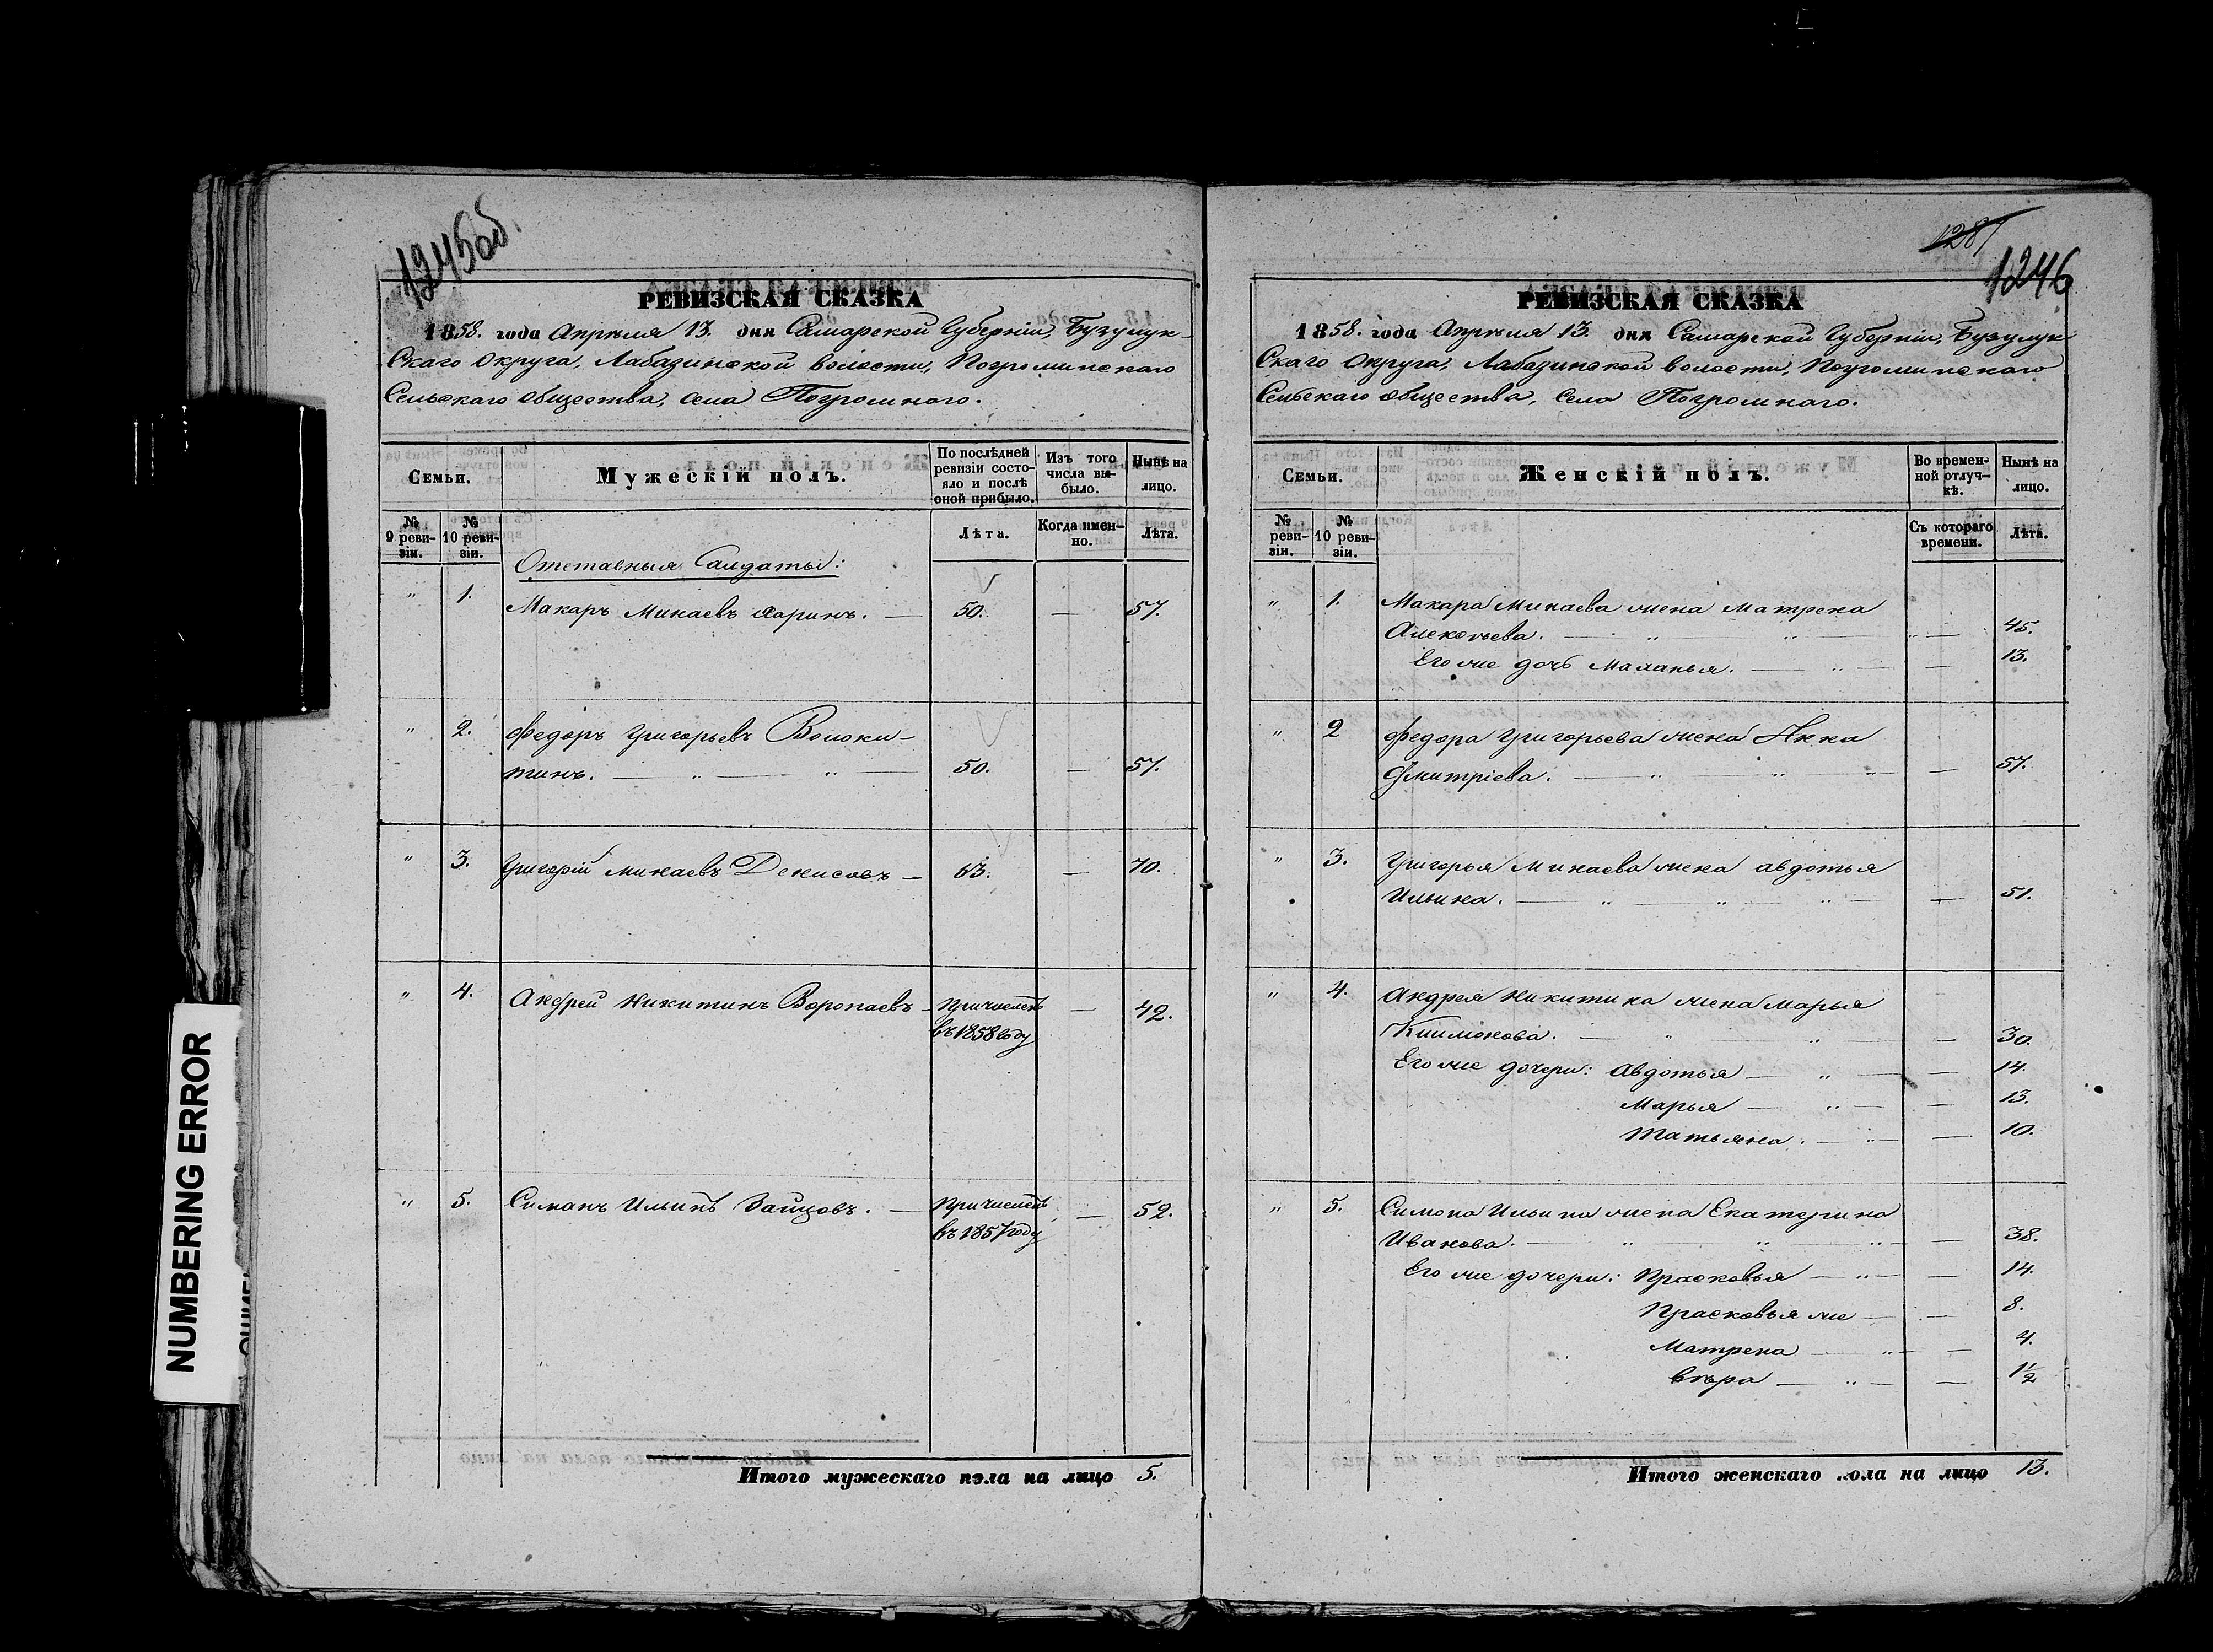 1245об.
РЕВИЗСКАЯ СКАЗКА
1858. года Апрѣля 13. дня Самарской Губерніи, Бузулук-
скаго Округа, Лабазинской волости, Погроминскаго
Сельскаго общества, села Погромнаго.
Семьи.
Мужескій полъ.
По послѣдней ревизіи состояло и послѣ оной прибыло.
Изъ того числа выбыло.
Нынѣ на лицо.
№ 9 ревизіи.
№ 10 ревизіи.
Лѣта.
Когда именно.
Лѣта.
Отставныя Салдаты:
" 1. Макаръ Минаевъ — 50. — 57.
" 2. Федоръ Григорьевъ Волоки-
тинъ. — " — " — 50. — 57.
" 3. Григорій Минаевъ Денисовъ — 63. — 70.
" 4. Андрей Никитинъ Воропаевъ — Причисленъ — 42.
въ 1858 году
" 5. Симанъ Ильинъ Зайцовъ. — Причисленъ — 52.
въ 1857 году
Итого мужескаго пола на лицо 5.
1281
1246
РЕВИЗСКАЯ СКАЗКА
1858. года Апрѣля 13. дня Самарской Губерніи, Бузулук-
скаго Округа, Лабазинской волости, Погроминскаго
Сельскаго общества, села Погромнаго.
Семьи.
Женскій полъ.
Во временной отлучкѣ.
Нынѣ на лицо.
№ ревизіи.
№ 10 ревизіи.
Съ котораго времени.
Лѣта.
" 1. Макара Минаева жена Матрена
Алексѣева. — " " " — 45.
Его же дочь Маланья. — " — — 13.
" 2 Федора Григорьева жена Анна
Дмитріева. — " " " — 57.
" 3. Григорья Минаева жена Авдотья
Ильина. — " — " — " — — 51.
" 4. Андрея Никитина жена Марья
Климонова. — " " — 30.
Его же дочери: Авдотья — " — — 14.
Марья — " — — 13.
Татьяна. — " — — 10.
" 5. Симона Ильина жена Екатерина
Иванова. — " " " — — 38.
Его же дочери: Прасковья — " — — 14.
Прасковья же — — 8.
Матрена — " — — 4.
Вѣра — " — — 1½
Итого женскаго пола на лицо 13.
NUMBERING ERROR